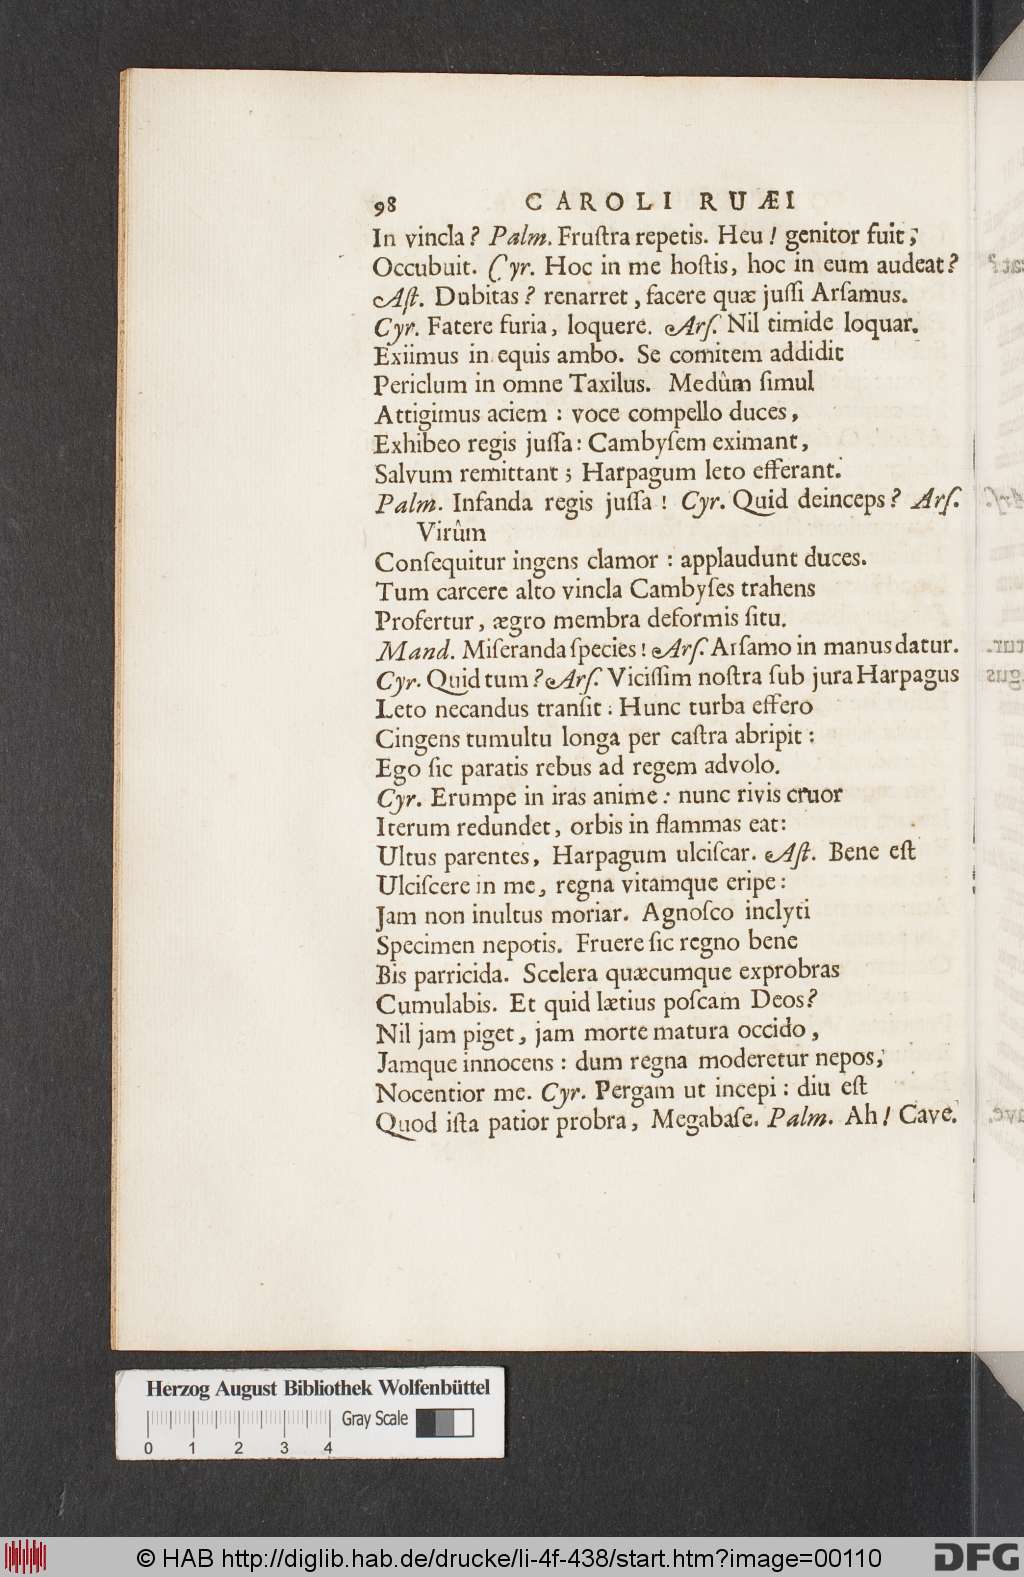 98 CAROLI RUÆI
In vincla? Palm. Fruſtra repetis. Heu! genitor fuit;
Occubuit. Cyr. Hoc in me hoſtis, hoc in eum audeat?
Aſt. Dubitas? renarret, facere quæ juſſi Arſamus.
Cyr. Fatere furia, loquere. Arſ. Nil timide loquar.
Exiimus in equis ambo. Se comitem addidit
Periclum in omne Taxilus. Medûm ſimul
Attigimus aciem: voce compello duces,
Exhibeo regis juſſa: Cambyſem eximant,
Salvum remittant; Harpagum leto efferant.
Palm. Infanda regis juſſa! Cyr. Quid deinceps? Arſ.
Virûm
Conſequitur ingens clamor: applaudunt duces.
Tum carcere alto vincla Cambyſes trahens
Profertur, ægro membra deformis ſitu.
Mand. Miſeranda ſpecies! Arſ. Arſamo in manus datur.
Cyr. Quid tum? Arſ. Viciſſim noſtra ſub jura Harpagus
Leto necandus tranſit: Hunc turba effero
Cingens tumultu longa per caſtra abripit:
Ego ſic paratis rebus ad regem advolo.
Cyr. Erumpe in iras anime: nunc rivis cruor
Iterum redundet, orbis in flammas eat:
Ultus parentes, Harpagum ulciſcar. Aſt. Bene eſt
Ulciſcere in me, regna vitamque eripe:
Jam non inultus moriar. Agnoſco inclyti
Specimen nepotis. Fruere ſic regno bene
Bis parricida. Scelera quæcumque exprobras
Cumulabis. Et quid lætius poſcam Deos?
Nil jam piget, jam morte matura occido,
Jamque innocens: dum regna moderetur nepos,
Nocentior me. Cyr. Pergam ut incepi: diu eſt
Quod iſta patior probra, Megabaſe. Palm. Ah! Cave.
Herzog August Bibliothek Wolfenbüttel
Gray Scale
0 1 2 3 4
© HAB http://diglib.hab.de/drucke/li-4f-438/start.htm?image=00110
DFG